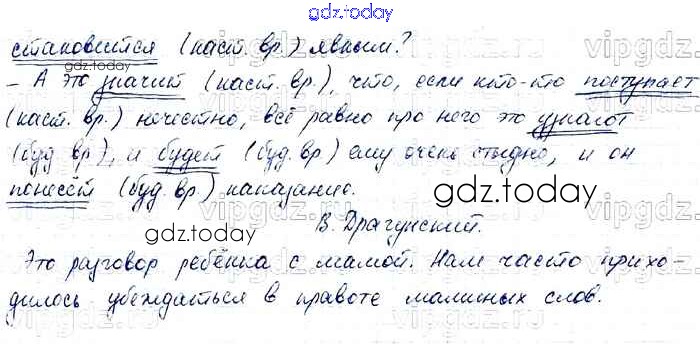 gdz.today
становится (наст. вр.) явным?
- А это значит (наст. вр.), что, если кто-то поступает
(наст. вр.) нечестно, всё равно про него это узнают
(буд. вр.), и будет (буд. вр) ему очень стыдно, и он
понесёт (буд. вр.) наказание.
В. Драгунский.
Это разговор ребёнка с мамой. Нам часто прихо-
дилось убеждаться в правоте маминых слов.
gdz.today
gdz.today
gdz.today